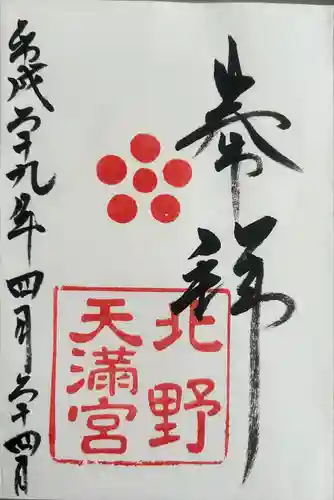 奉拝
北野
天満宮
平成二十九年四月二十四日